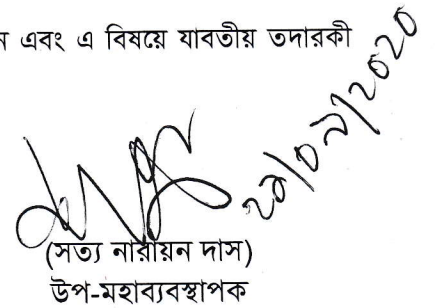 এবং এ বিষয়ে যাবতীয় তদারকী
২৯/০৯/২০২০
(সত্য নারায়ন দাস)
উপ-মহাব্যবস্থাপক